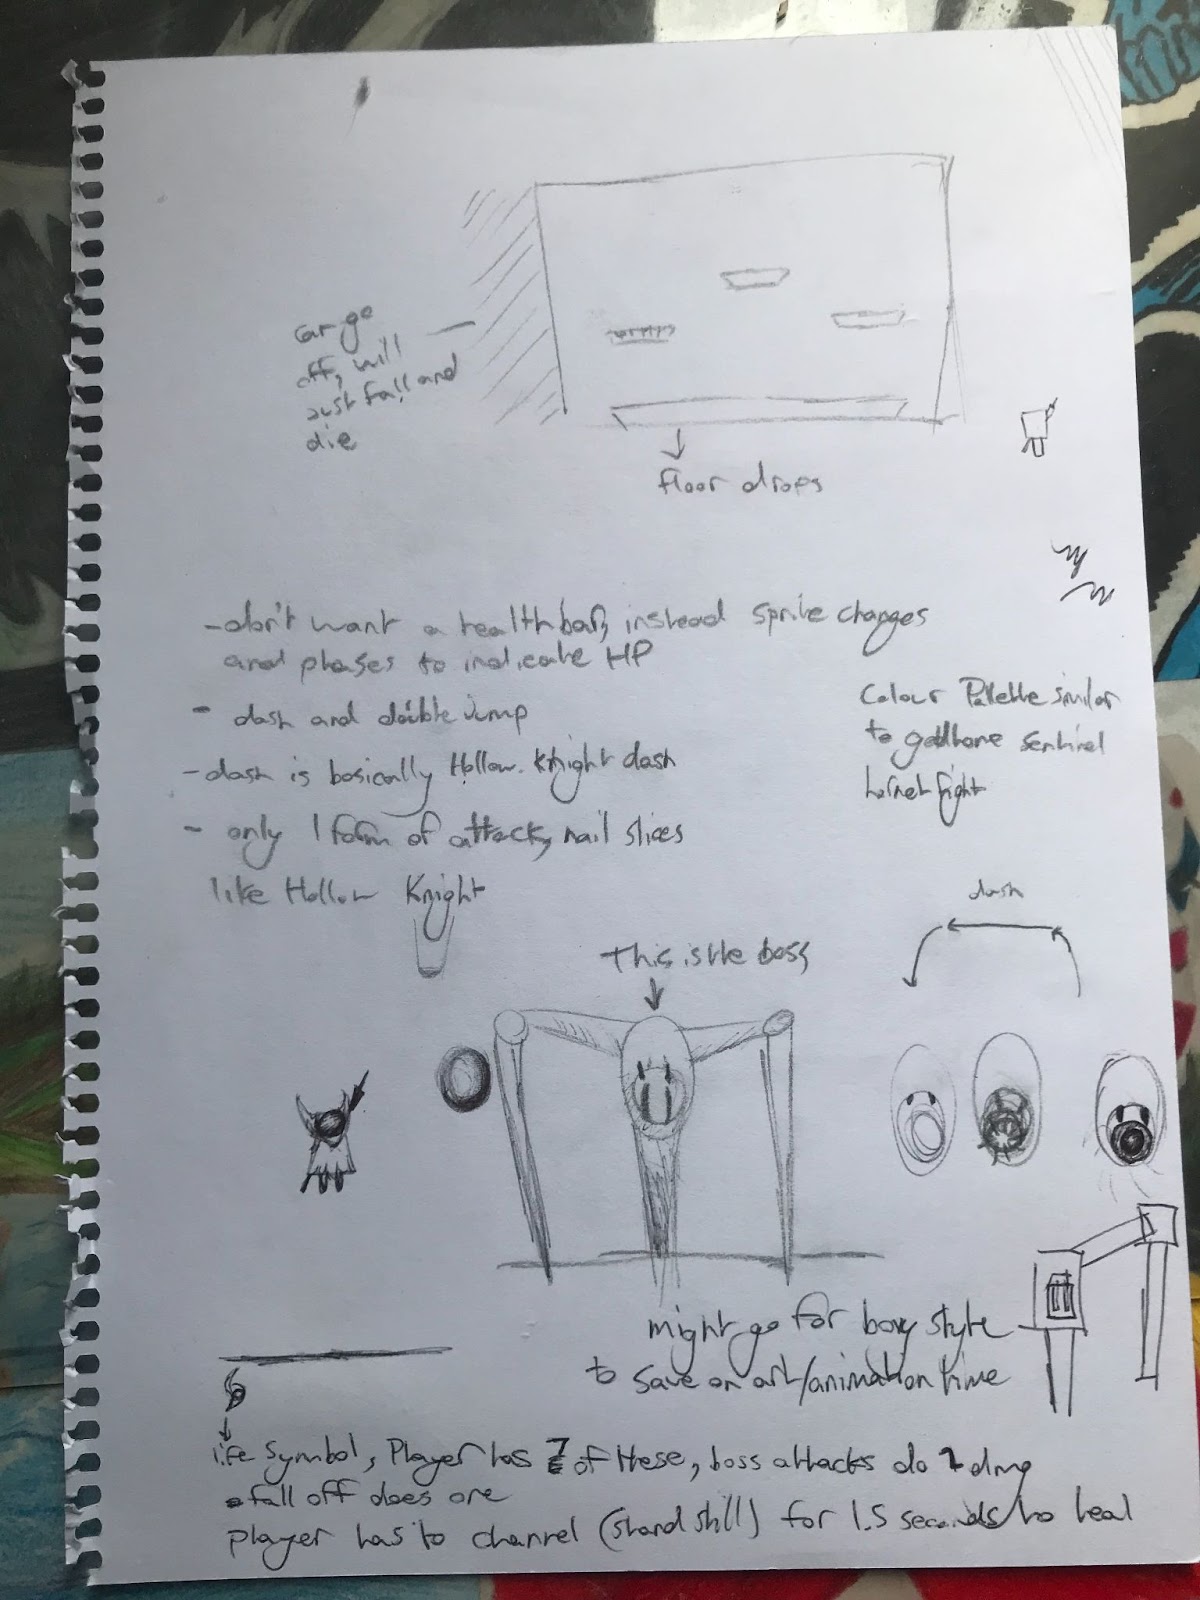 can go
off, will
just fall and
die
floor drops
-don't want a healthbar, instead sprite changes
and phases to indicate HP
- dash and double jump
-dash is basically Hollow Knight dash
- only 1 form of attack, nail slices
like Hollow Knight
Colour Palette similar
to godhome sentinel
hornet fight
dash
This is the boss
might go for boxy style
to save on art/animation time
life symbol, Player has 7 of these, boss attacks do 2 dmg
fall off does one
player has to channel (stand still) for 1.5 seconds to heal